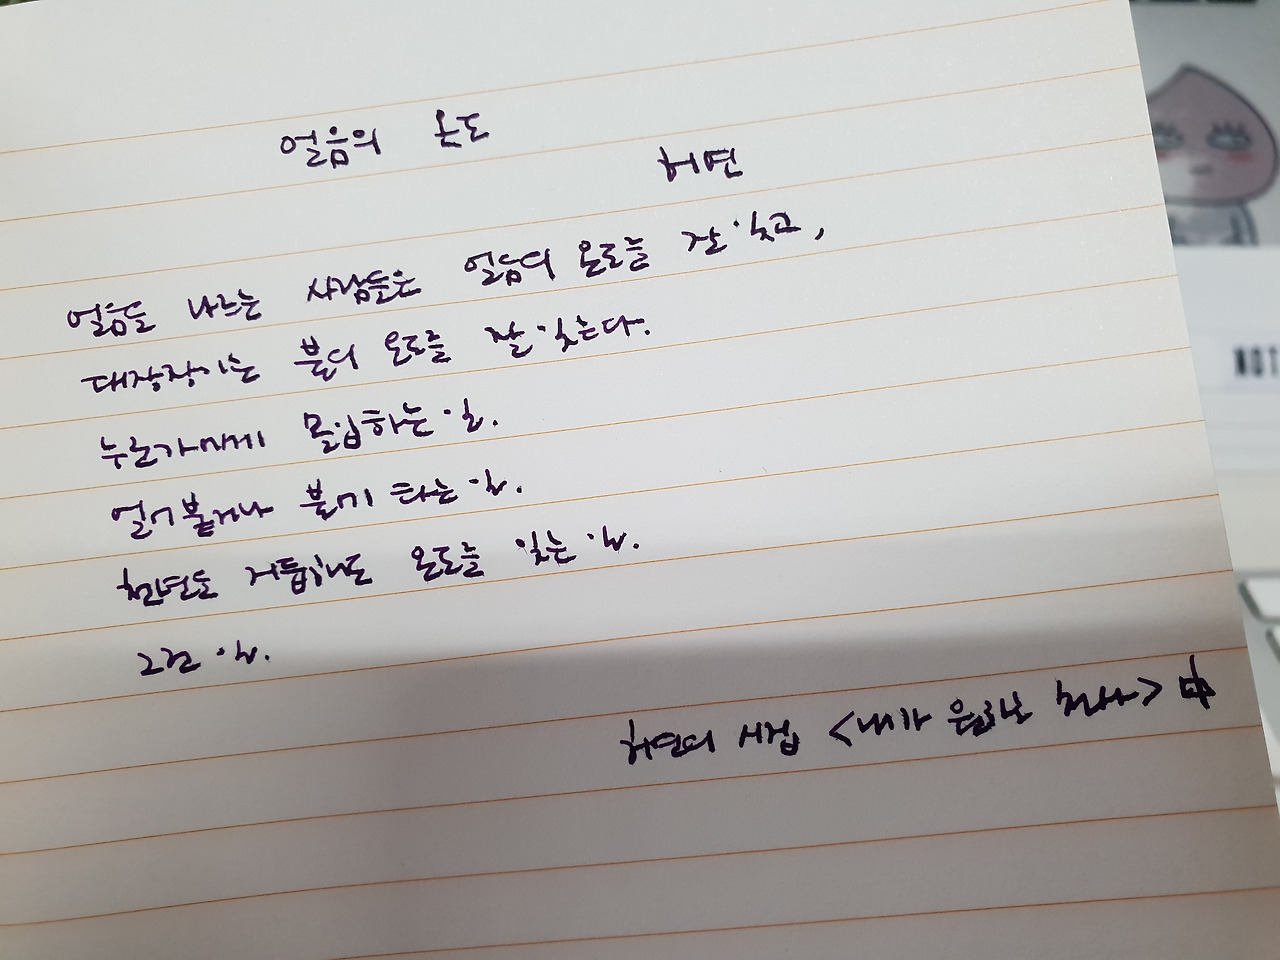 얼음의 온도
허연
얼음을 나르는 사람들은 얼음의 온도를 잘 잊고,
대장장이는 불의 온도를 잘 잊는다.
누군가에게 몰입하는 일.
얼어붙거나 불에 타는 일.
천년도 거듭해도 온도를 잊는 일.
그런 일.
허연의 시집 <내가 원하는 천사> 中
NOT